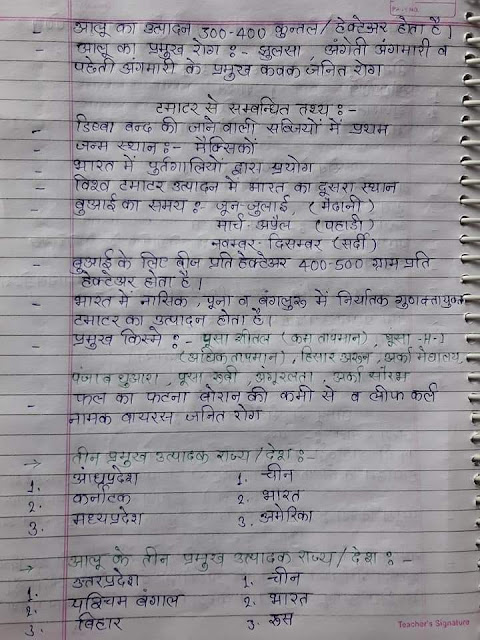 - आलू का उत्पादन 300-400 कुन्तल/हेक्टेअर होता है।
- आलू का प्रमुख रोग :- झुलसा, अँगेती अंगमारी व
पछेती अंगमारी के प्रमुख कवक जनित रोग
टमाटर से सम्बन्धित तथ्य :-
- डिब्बा बन्द की जाने वाली सब्जियों में प्रथम
- जन्म स्थान :- मैक्सिकों
- भारत में पुर्तगालियों द्वारा प्रयोग
- विश्व टमाटर उत्पादन में भारत का दूसरा स्थान
- बुआई का समय :- जून-जुलाई, (मैदानी)
मार्च-अप्रैल (पहाडी)
नवम्बर-दिसम्बर (सर्दी)
- बुआई के लिए बीज प्रति हेक्टेअर 400-500 ग्राम प्रति
हेक्टेअर होता है।
- भारत में नासिक, पूना व बंगलुरू में निर्यातक गुणवत्तायुक्त
टमाटर का उत्पादन होता है।
- प्रमुख किस्में :- पूसा शीतल (कम तापमान), पूसा -H-1
(अधिक तापमान), हिसार अरुन, अर्का मेघालय,
पंजाब छुआरा, पूसा रूबी, अंगूरलता, अर्का सौरभ
- फल का फटना बोरान की कमी से व लीफ कर्ल
नामक वायरस जनित रोग
→ तीन प्रमुख उत्पादक राज्य/देश :-
1. आंध्रप्रदेश 1. चीन
2. कर्नाटक 2. भारत
3. मध्यप्रदेश 3. अमेरिका
→ आलू के तीन प्रमुख उत्पादक राज्य/देश :-
1. उत्तरप्रदेश 1. चीन
2. पश्चिम बंगाल 2. भारत
3. बिहार 3. रूस
Teacher's Signature